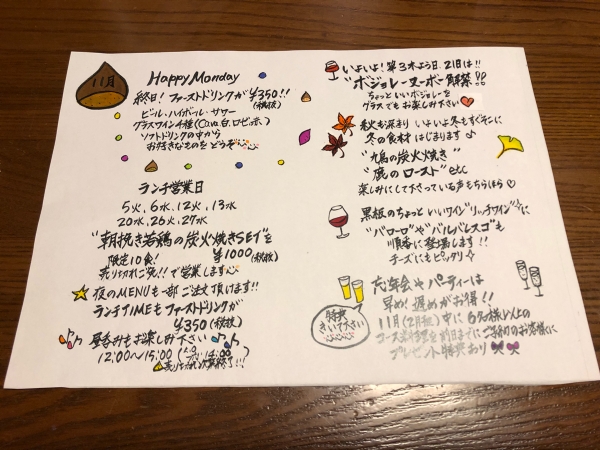 11月
Happy Monday
終日! ファーストドリンクが¥350!!
(税抜)
ビール、ハイボール・サワー
グラスワイン4種(Cava,白,ロゼ,赤)
ソフトドリンクの中から
お好きなものをどうぞ
ランチ営業日
5火,6水,12火,13水
20水,26火,27水
"朝挽き若鶏の炭火焼きSET"を
限定10食! ¥1000(税抜)
売りきれご免!!で営業します
夜のMENUも一部ご注文頂けます!!
ランチTIMEもファーストドリンクが
¥350(税抜)
昼呑みもお楽しみ下さい
12:00〜15:00
いよいよ!第3木よう日、21日は!!
"ボジョレーヌーボー解禁"!!
ちょっといいボジョレーを
グラスでもお楽しみ下さい
秋も深まり いよいよ冬もすぐそこに
冬の食材 はじまります♪
"鳩の炭火焼き"
"鹿のロースト"etc
楽しみにして下さっている声もちらほら♡
黒板のちょっといいワイン"リッチワイン"に
"バローロ"や"バルバレスコ"も
順番に登場します!!
チーズにもピッタリ☆
忘年会やパーティーは
早め!遅めがお得!!
特典
きいて下さい
11月,12月 中に6名様以上の
を前日までにご予約のお客様に
プレゼント特典あり